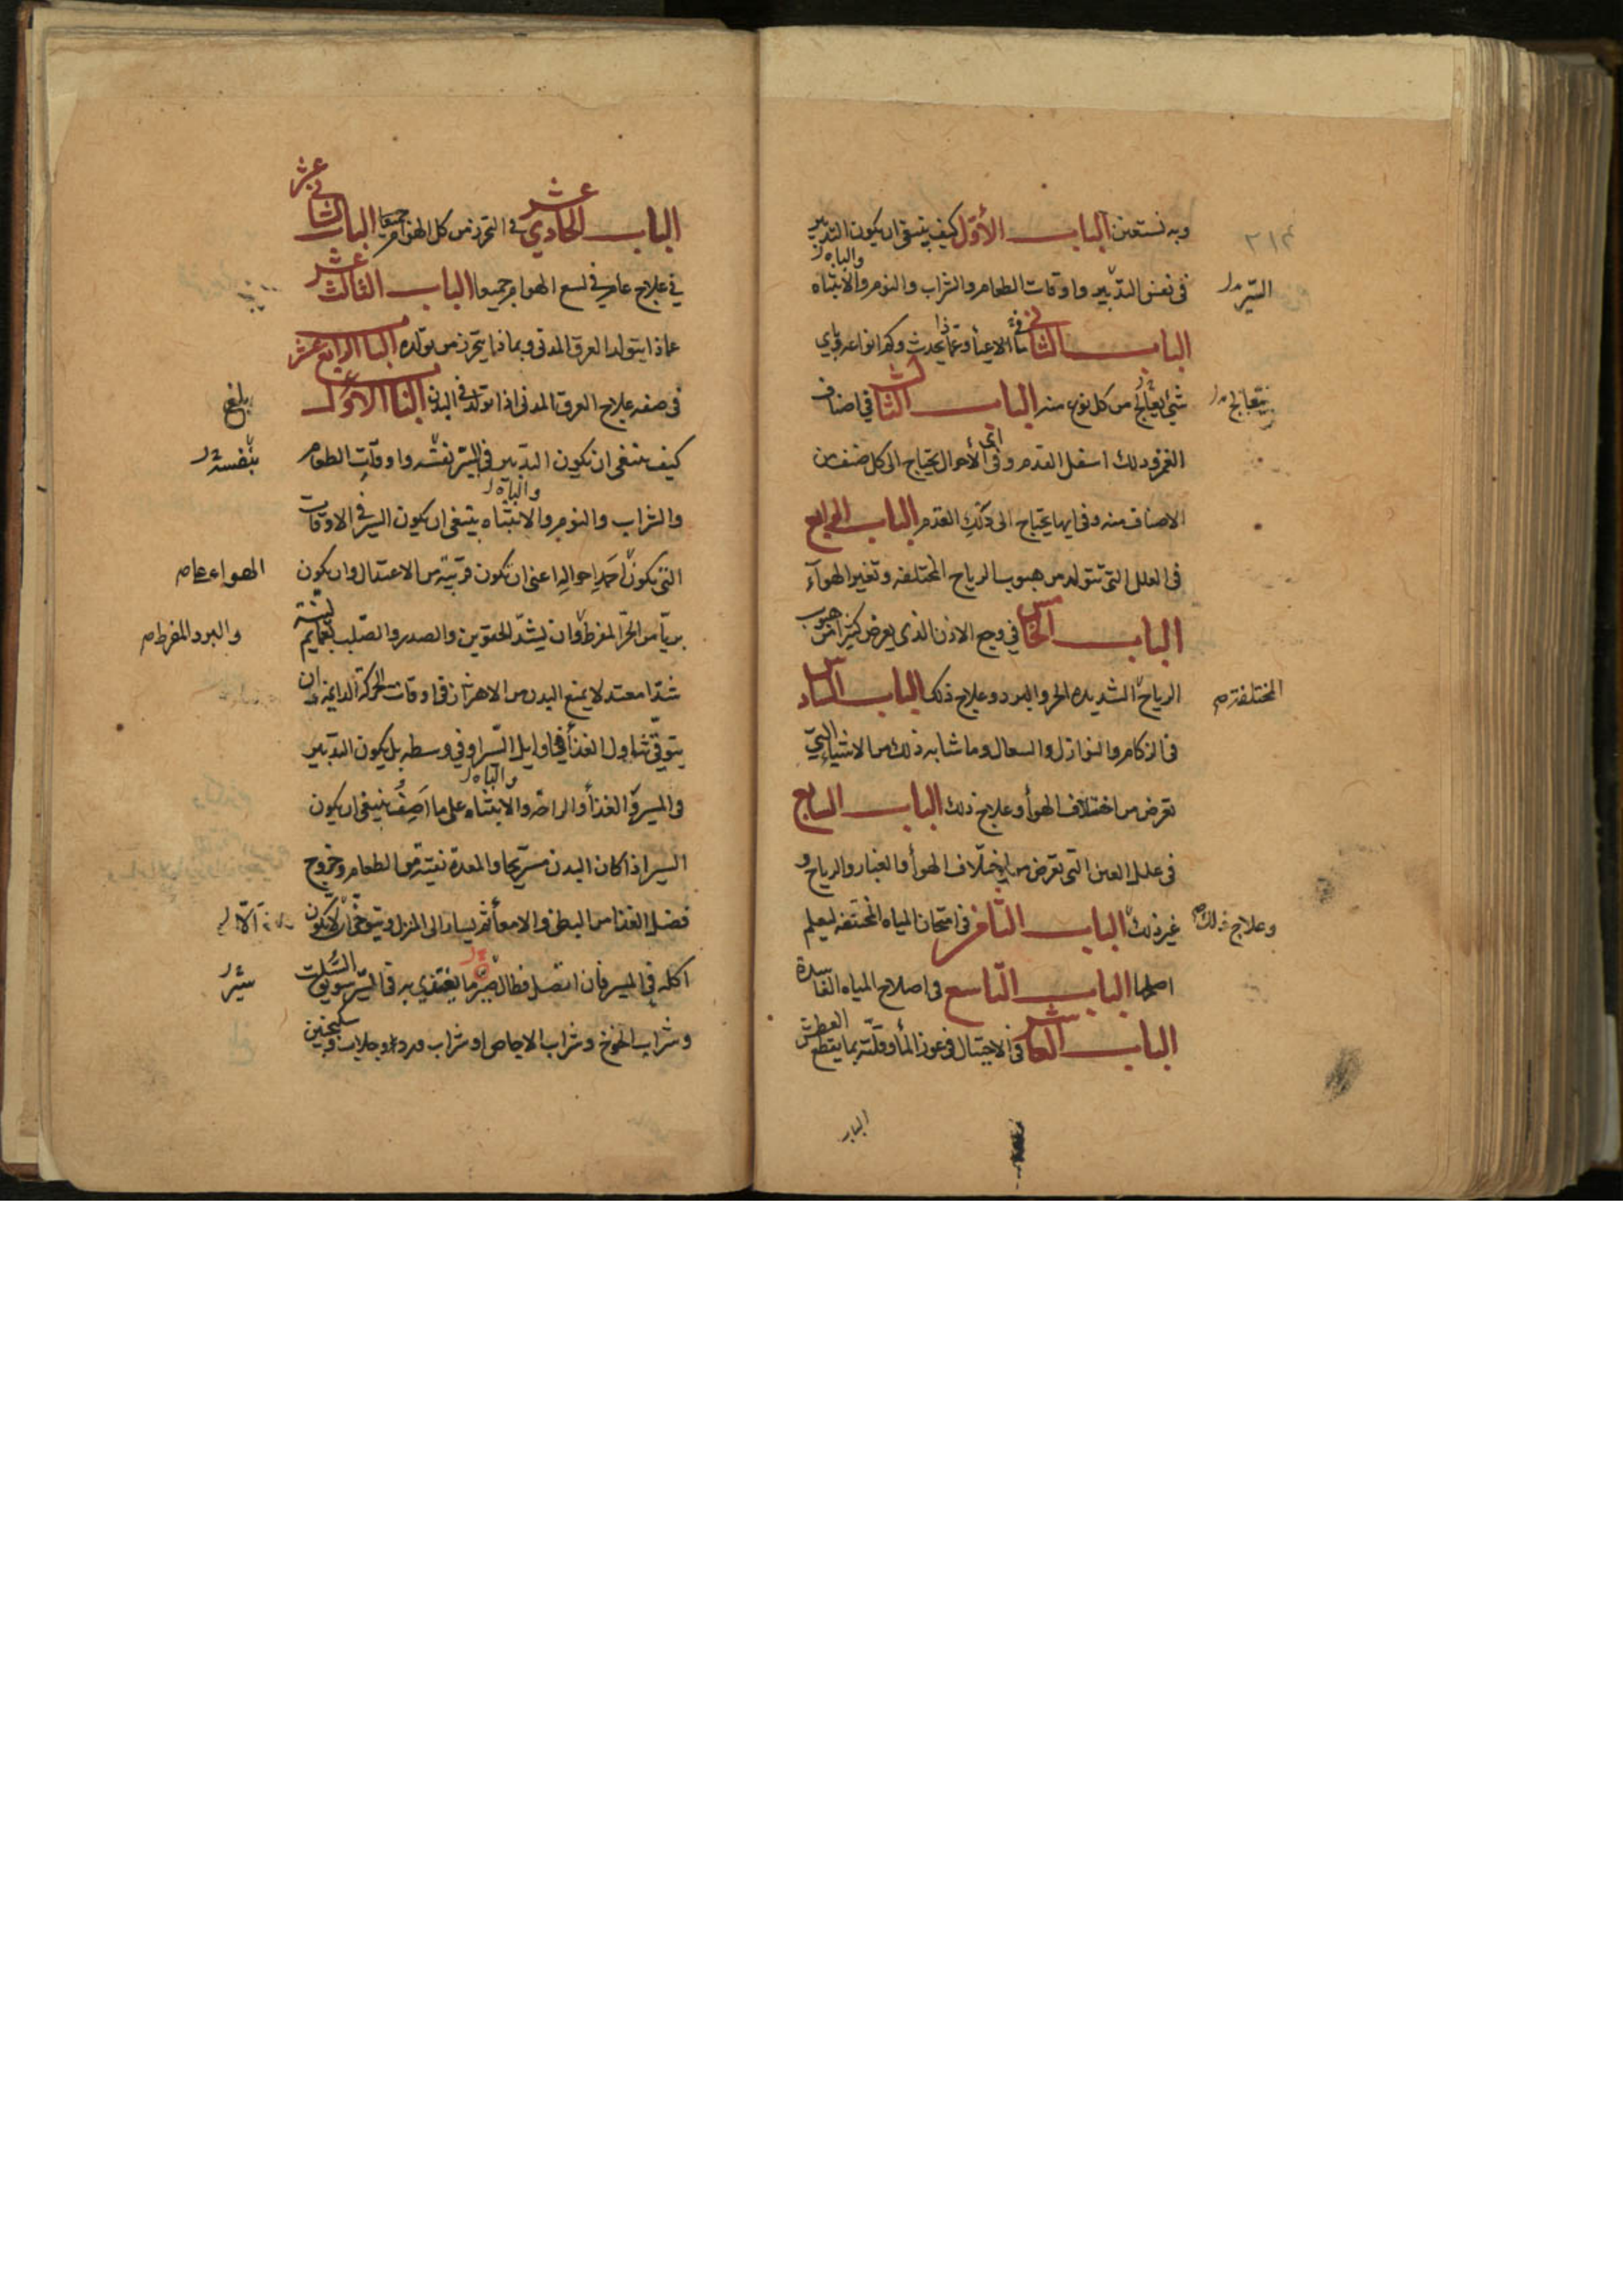 وبه نستعين الباب الأول كيف ينبغي ان يكون التدبير
في نفس التدبير واوقات الطعام والشراب والنوم والانتباه والباه
السير
الباب الثاني في ما الاعياء وعماذا يحدث وكم انواعه وباي
شي يعالج من كل نوع منه الباب الثالث في اصناف
يتعالج
الغمز ودلك اسفل القدم وفي اي الأحوال يحتاج الى كل صنف من
الاصناف منه وفي ايها يحتاج الى دلك القدم الباب الرابع
في العلل التي تتولد من هبوب الرياح المختلفه وتغير الهوآء
الباب الخامس في وجع الاذن الذي يعرض كثيرا من هبوب
الرياح الشديده الحر والبرد وعلاج ذلك الباب السادس
المختلفة
في الزكام والنوازل والسعال وما شابه ذلك من الاشياء التي
تعرض من اختلاف الهوأ وعلاج ذلك الباب السابع
في علل العين التي تعرض من اختلاف الهوأ والغبار والرياح و
غير ذلك الباب الثامن في امتحان المياه المختلفه ليعلم
وعلاج ذلك
اصلحها الباب التاسع في اصلاح المياه الفاسدة
الباب العاشر في الاحتيال في عوز المأ وقلته بما يقطع العطش
الباب
الباب الحادي عشر في التحرز من كل الهوام جميعا الباب الثاني عشر
في علاج عام في لسع الهوام جميعا الباب الثالث عشر
عماذا يتولد العرق المدني وبماذا يتحرز من تولده الباب الرابع عشر
في صفه علاج العرق المدني اذا تولد في البدن الباب الأول
بلغ
كيف ينبغي ان يكون التدبير في السير نفسه واوقات الطعام
بنفسه
والشراب والنوم والانتباه والباه ينبغي ان يكون السير في الاوقات
التي يكون احمد احواله اعني ان تكون قريبة من الاعتدال وان يكون
الهواء
بريآ من الحر المفرط وان يشد الحقوين والصدر والصلب بعمايم لينة
والبرد المفرط
شدا معتدلا يمنع البدن من الاهتزاز في اوقات الحركة الدايمة وان
يتوقى تناول الغذأ في اوايل السير او في وسطه بل يكون التدبير
في المسير في الغذأ والراحه والانتباه والباه على ما اصف ينبغي ان يكون
السير اذا كان البدن مستريحا والمعدة نقية من الطعام وخروج
فضل الغذا من البطن والامعأ ثم يسار الى المنزل ويتوخى ان لا يكون
اكله في المسير فان اتصل فطال سير ما يغتذي به في السير سويق السلت
سير
وشراب الخوخ وشراب الاجاص او شراب ورد او جلاب وسكنجبين